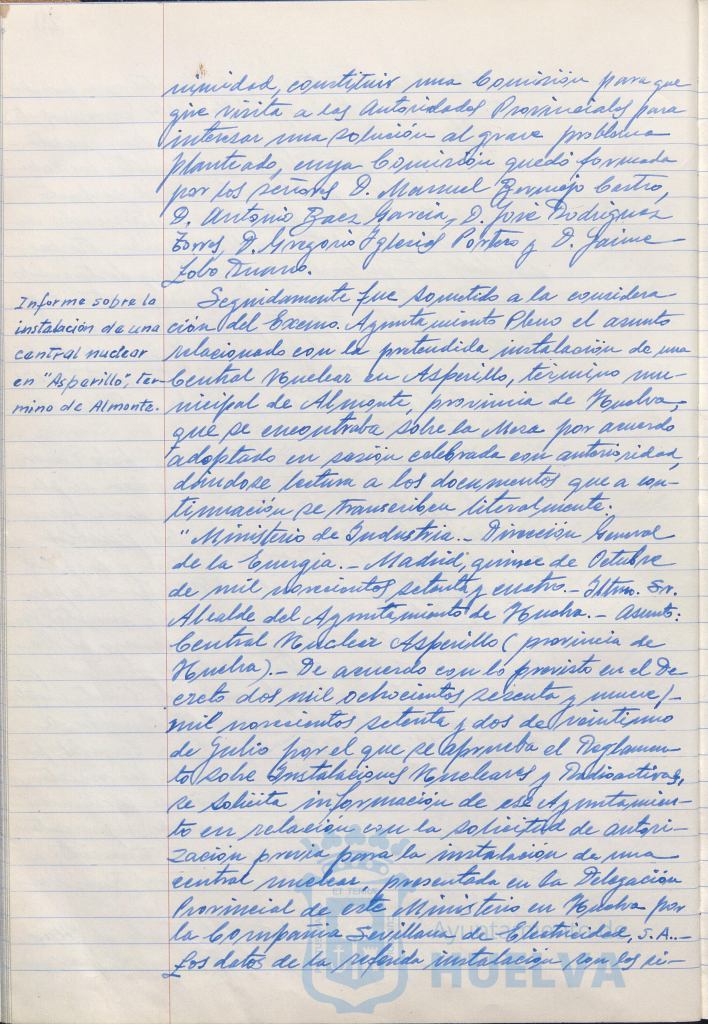 nimidad, constituir una Comisión para que
gire visita a las Autoridades Provinciales para
interesar una solución al grave problema
planteado, cuya Comisión quedó formada
por los señores D. Manuel Bermejo Castro,
D. Antonio Baez Garcia, D. José Rodriguez
Torres, D. Gregorio Iglesias Portero y D. Jaime
Lobo
Informe sobre la
instalación de una
central nuclear
en "Asperillo", tér-
mino de Almonte.
Seguidamente fue sometido a la considera
ción del Excmo. Ayuntamiento Pleno el asunto
relacionado con la pretendida instalación de una
Central Nuclear en Asperillo, término mu-
nicipal de Almonte, provincia de Huelva,
que se encontraba sobre la Mesa por acuerdo
adoptado en sesión celebrada con autorioridad,
dándose lectura a los documentos que a con-
tinuación se transcriben literalmente:
"Ministerio de Industria.- Dirección General
de la Energía.- Madrid, quince de Octubre
de mil novecientos setenta y cuatro.- Iltmo. Sr.
Alcalde del Ayuntamiento de Huelva.- Asunto:
Central Nuclear Asperillo (provincia de
Huelva).- De acuerdo con lo previsto en el De
creto dos mil ochocientos sesenta y nueve/-
mil novecientos setenta y dos de veintiuno
de Julio por el que se aprueba el Reglamen-
to sobre Instalaciones Nucleares y Radioactivas,
se solicita información de ese Ayuntamien-
to en relación con la solicitud de autori-
zación previa para la instalación de una
central nuclear, presentada en la Delegación
Provincial de este Ministerio en Huelva por
la Compañia Sevillana de Electricidad, S.A..-
Los datos de la referida instalación son los si-
Ayuntamiento de
HUELVA